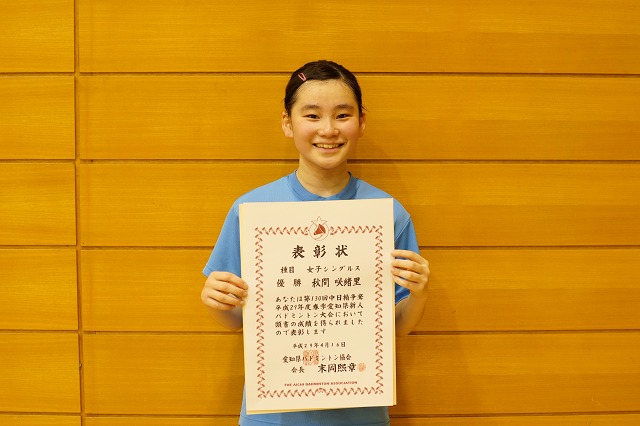 表彰状
種目 女子シングルス
優勝 秋間 咲緒里
あなたは第130回中日楯争奪
平成29年度春季愛知県新人
バドミントン大会において
頭書の成績を得られました
ので表彰します
平成29年4月16日
愛知県バドミントン協会
会長 末岡熙章
THE AICHI BADMINTON ASSOCIATION